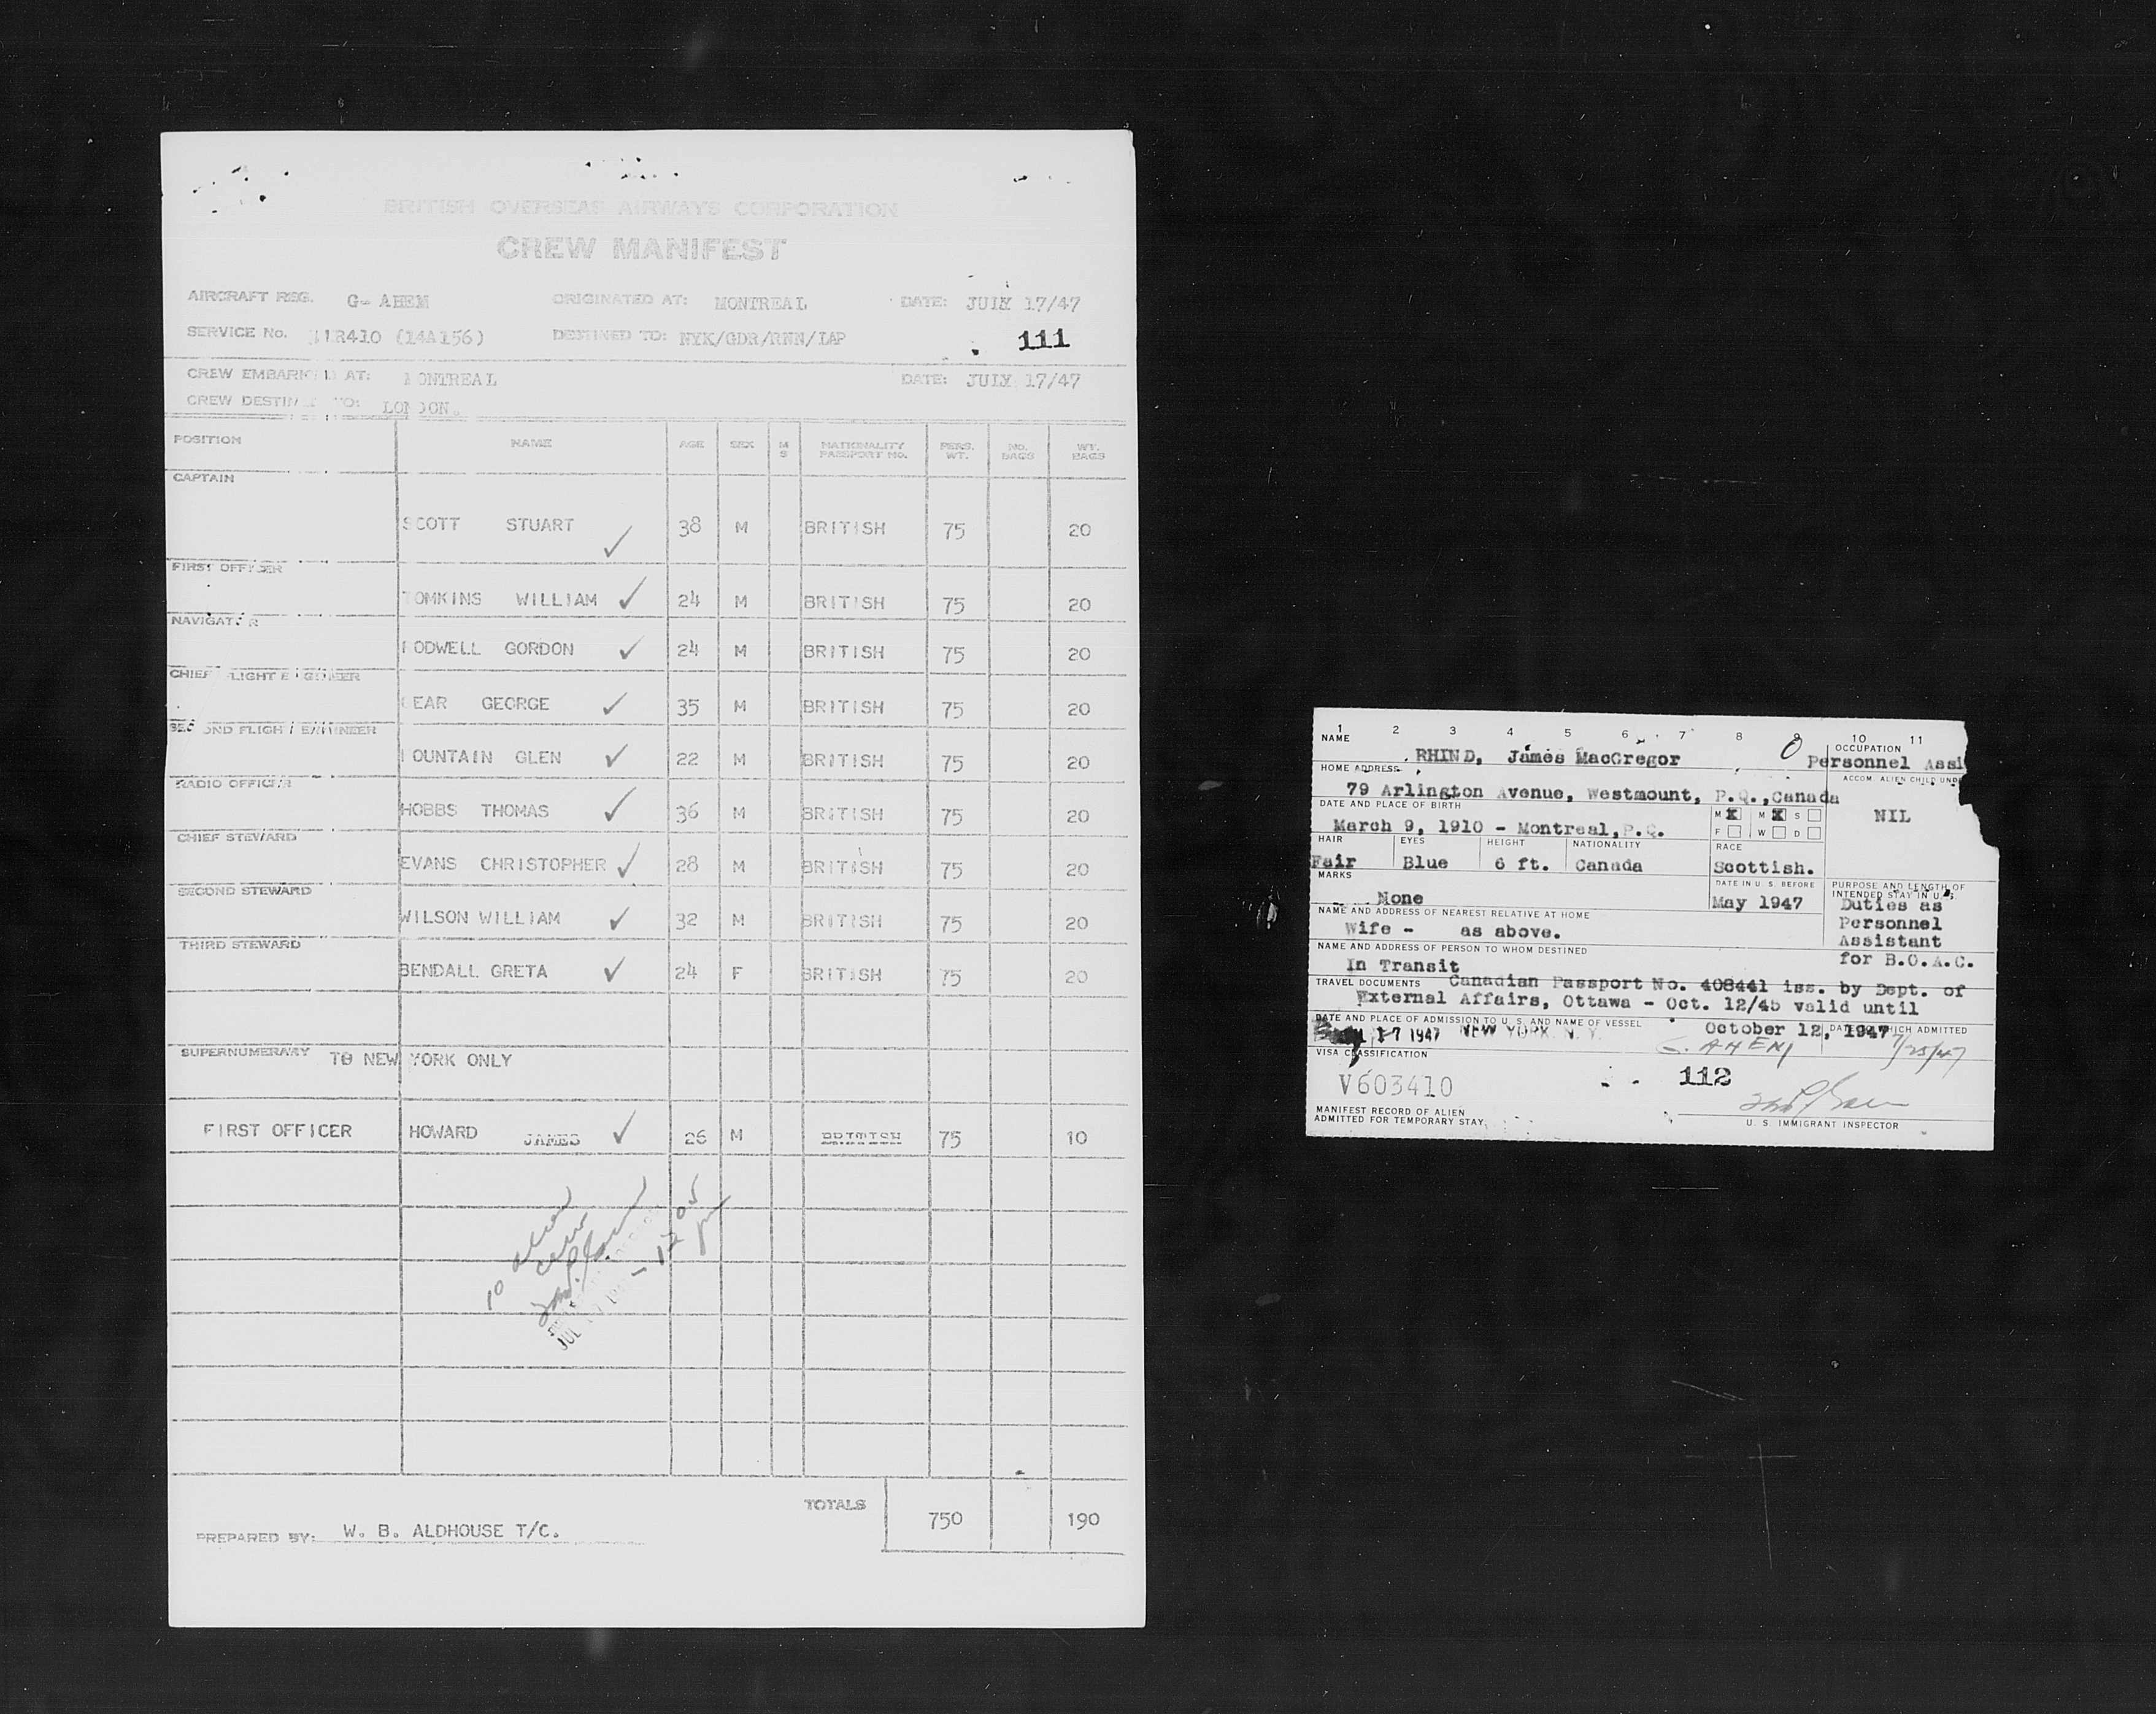 BRITISH OVERSEAS AIRWAYS CORPORATION
CREW MANIFEST
AIRCRAFT REG. G- AHEM ORIGINATED AT: MONTREAL DATE: JULY 17/47
SERVICE No. 1R410 (14A156) DESTINED TO: NYK/GDR/RNN/LAP 111
CREW EMBARK D AT: MONTREAL DATE: JULY 17/47
CREW DESTIN TO: LONDON.
POSITION NAME AGE SEX M S NATIONALITY PASSPORT NO. PERS. WT. NO. BAGS WT. BAGS
CAPTAIN
SCOTT STUART ✓ 38 M BRITISH 75 20
FIRST OFFICER
TOMKINS WILLIAM ✓ 24 M BRITISH 75 20
NAVIGATOR
ODWELL GORDON ✓ 24 M BRITISH 75 20
CHIEF FLIGHT ENGINEER
EAR GEORGE ✓ 35 M BRITISH 75 20
SECOND FLIGHT ENGINEER
OUNTAIN GLEN ✓ 22 M BRITISH 75 20
RADIO OFFICER
HOBBS THOMAS ✓ 36 M BRITISH 75 20
CHIEF STEWARD
EVANS CHRISTOPHER ✓ 28 M BRITISH 75 20
SECOND STEWARD
WILSON WILLIAM ✓ 32 M BRITISH 75 20
THIRD STEWARD
BENDALL GRETA ✓ 24 F BRITISH 75 20
SUPERNUMERARY TO NEW YORK ONLY
FIRST OFFICER HOWARD JAMES ✓ 26 M BRITISH 75 10
10 alien
crew
JUL
- 12 05
pm
TOTALS 750 190
PREPARED BY: W. B. ALDHOUSE T/C.
1 2 3 4 5 6 7 8 9 10 11
NAME OCCUPATION
RHIND, James MacGregor 0 Personnel Assi
HOME ADDRESS ACCOM. ALIEN CHILD UND
79 Arlington Avenue, Westmount, P.Q.,Canada
DATE AND PLACE OF BIRTH M X M X S NIL
March 9, 1910 - Montreal,P.Q. F W D
HAIR EYES HEIGHT NATIONALITY RACE
Fair Blue 6 ft. Canada Scottish.
MARKS DATE IN U. S. BEFORE PURPOSE AND LENGTH OF INTENDED STAY IN U. S.
None May 1947 Duties as
Personnel
Assistant
for B.O.A.C.
NAME AND ADDRESS OF NEAREST RELATIVE AT HOME
Wife - as above.
NAME AND ADDRESS OF PERSON TO WHOM DESTINED
In Transit
TRAVEL DOCUMENTS Canadian Passport No. 408441 iss. by Dept. of
External Affairs, Ottawa - Oct. 12/45 valid until
DATE AND PLACE OF ADMISSION TO U. S. AND NAME OF VESSEL October 12, 1947 DATE TO WHICH ADMITTED
17 1947 NEW YORK N. Y. G. AHEM 7/25/47
VISA CLASSIFICATION
V603410 112
MANIFEST RECORD OF ALIEN
ADMITTED FOR TEMPORARY STAY
U. S. IMMIGRANT INSPECTOR